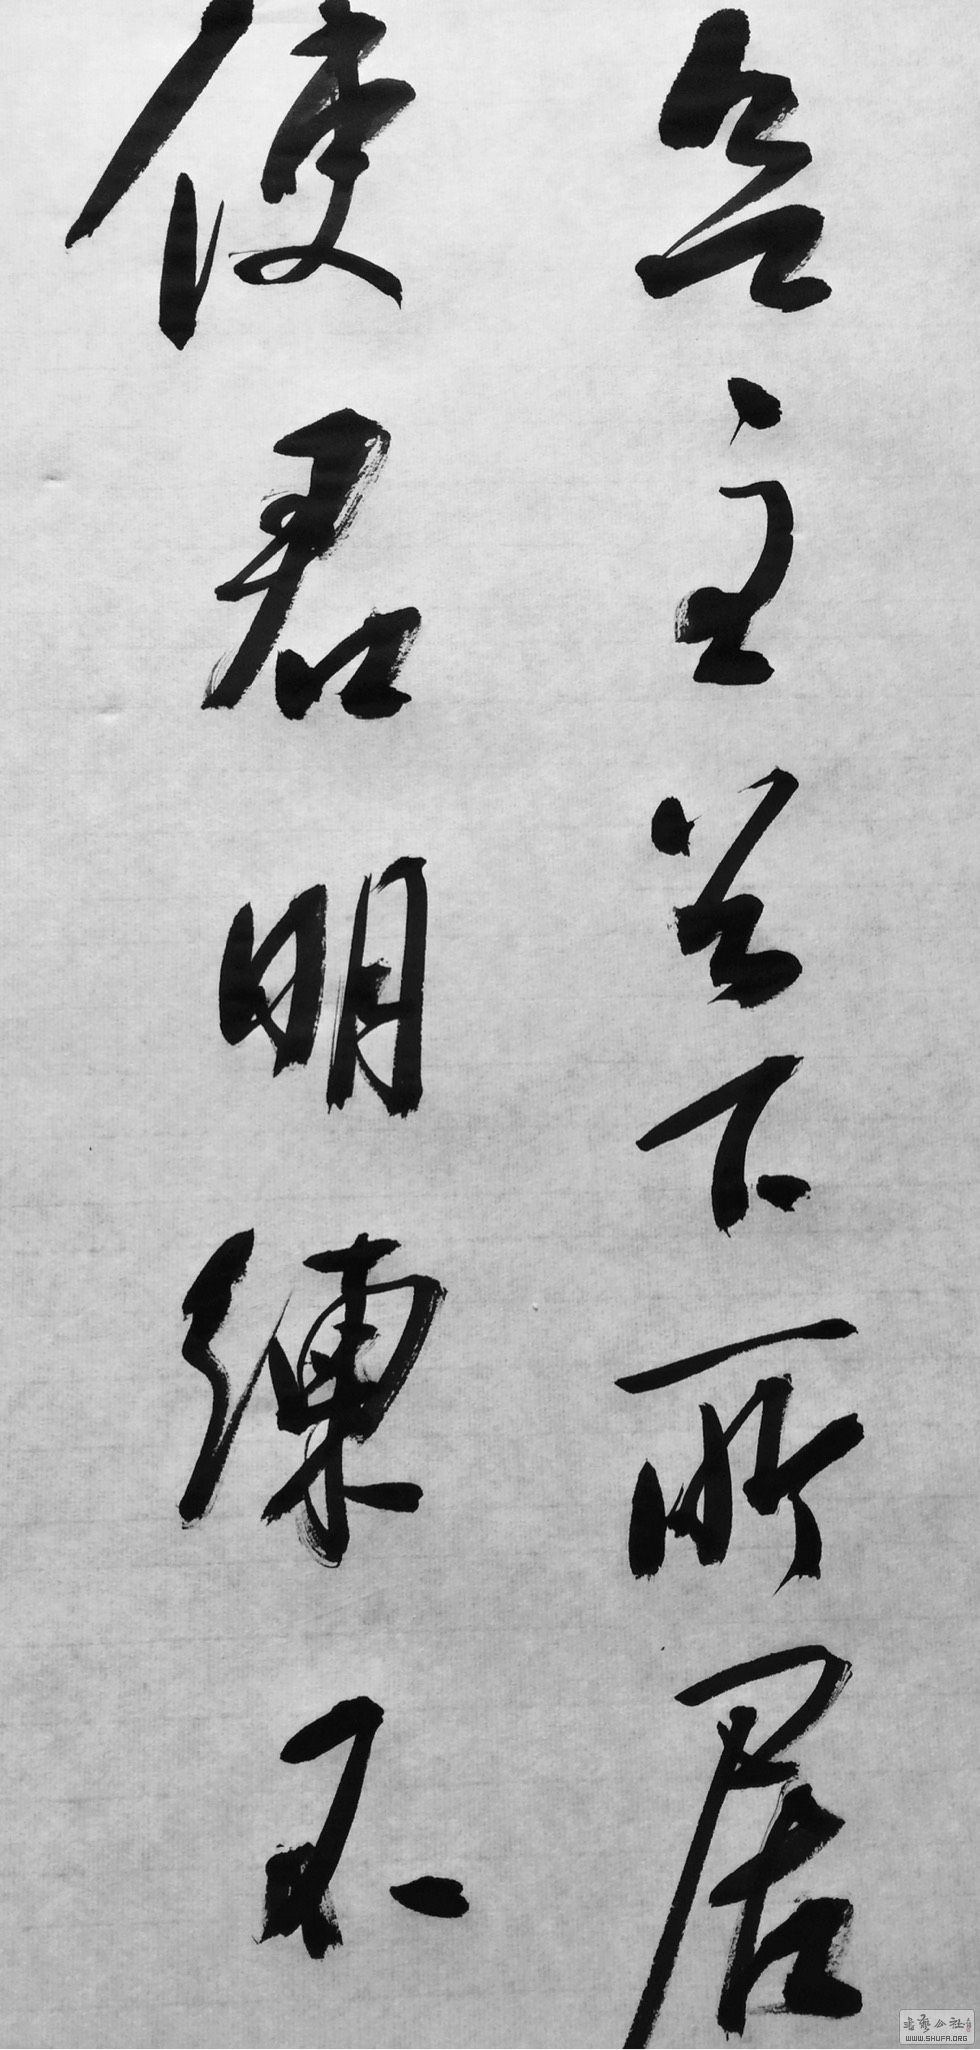 主下所居
使君明練不
书艺公社
WWW.SHUFA.ORG